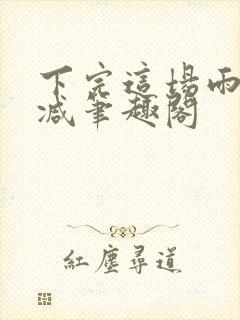 下完這場雨
減筆趣閣
紅塵尋道